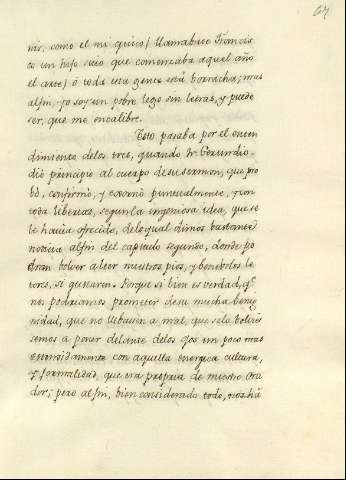 67
nir, como el mi quirio/ llamabase Francis
co un hijo suio que comenzaba aquel año
el arte/ ó toda esta gente está borracha; mas
al fin, yo soy un pobre lego sin letras, y puede
ser, que me encalibre.
Esto pasaba por el enten
dimiento de los tres, quando Fr. Gerundio
dió principio al cuerpo de su sermon, que pro
bó, confirmó, y exornó puntualmente, y con
toda libertad, segun la ingeniosa idea, que se
le havia ofrecido, de lo qual dimos bastante
noticia al fin del capitulo segundo, donde po
dran bolver a leer nuestros pios, y benevolos lec
tores, si gustaren. Porque si bien es verdad, q.e
nos podriamos prometer de su mucha benig
nidad, que no llebasen a mal, que se lo bolvie
semos a poner delante de los ojos un poco mas
estendidamente con aquella energica cultura,
y formalidad, que era propria de nuestro Ora
dor; pero al fin, bien considerado todo, nos ha